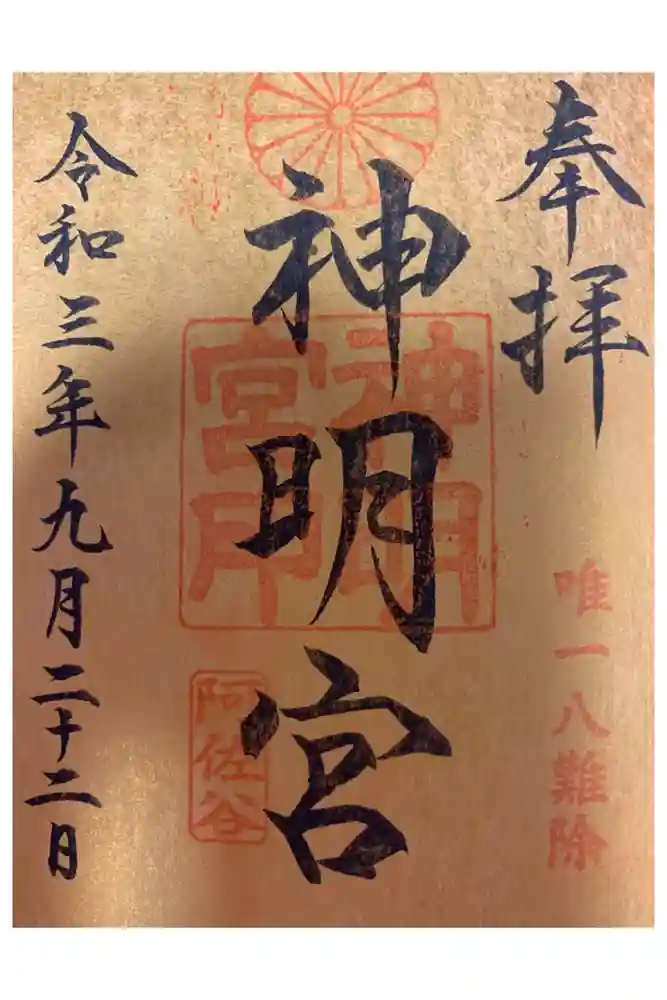 奉拝
唯一八難除
神明宮
神明宮印
阿佐谷
令和三年九月二十二日